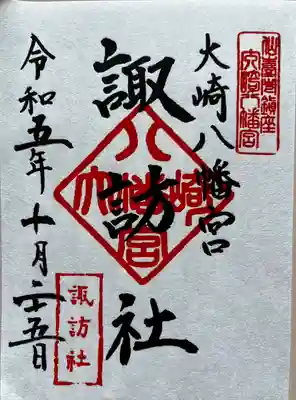 大崎八幡宮
諏訪社
令和五年十月二十五日
大崎八幡宮
大崎八幡宮
諏訪社